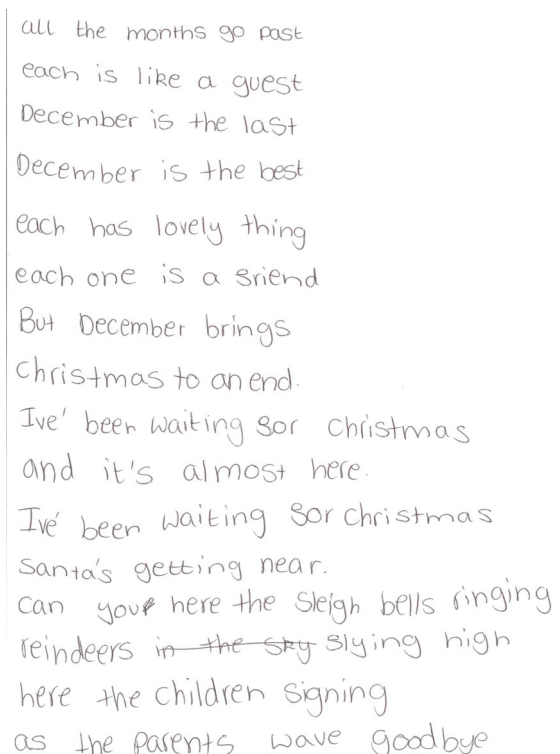 all the months go past
each is like a guest
December is the last
December is the best
each has lovely thing
each one is a friend
But December brings
Christmas to an end.
Ive' been waiting for Christmas
and it's almost here.
Ive' been waiting for Christmas
Santa's getting near.
can you here the sleigh bells ringing
reindeers in the sky flying high
here the children signing
as the parents wave goodbye